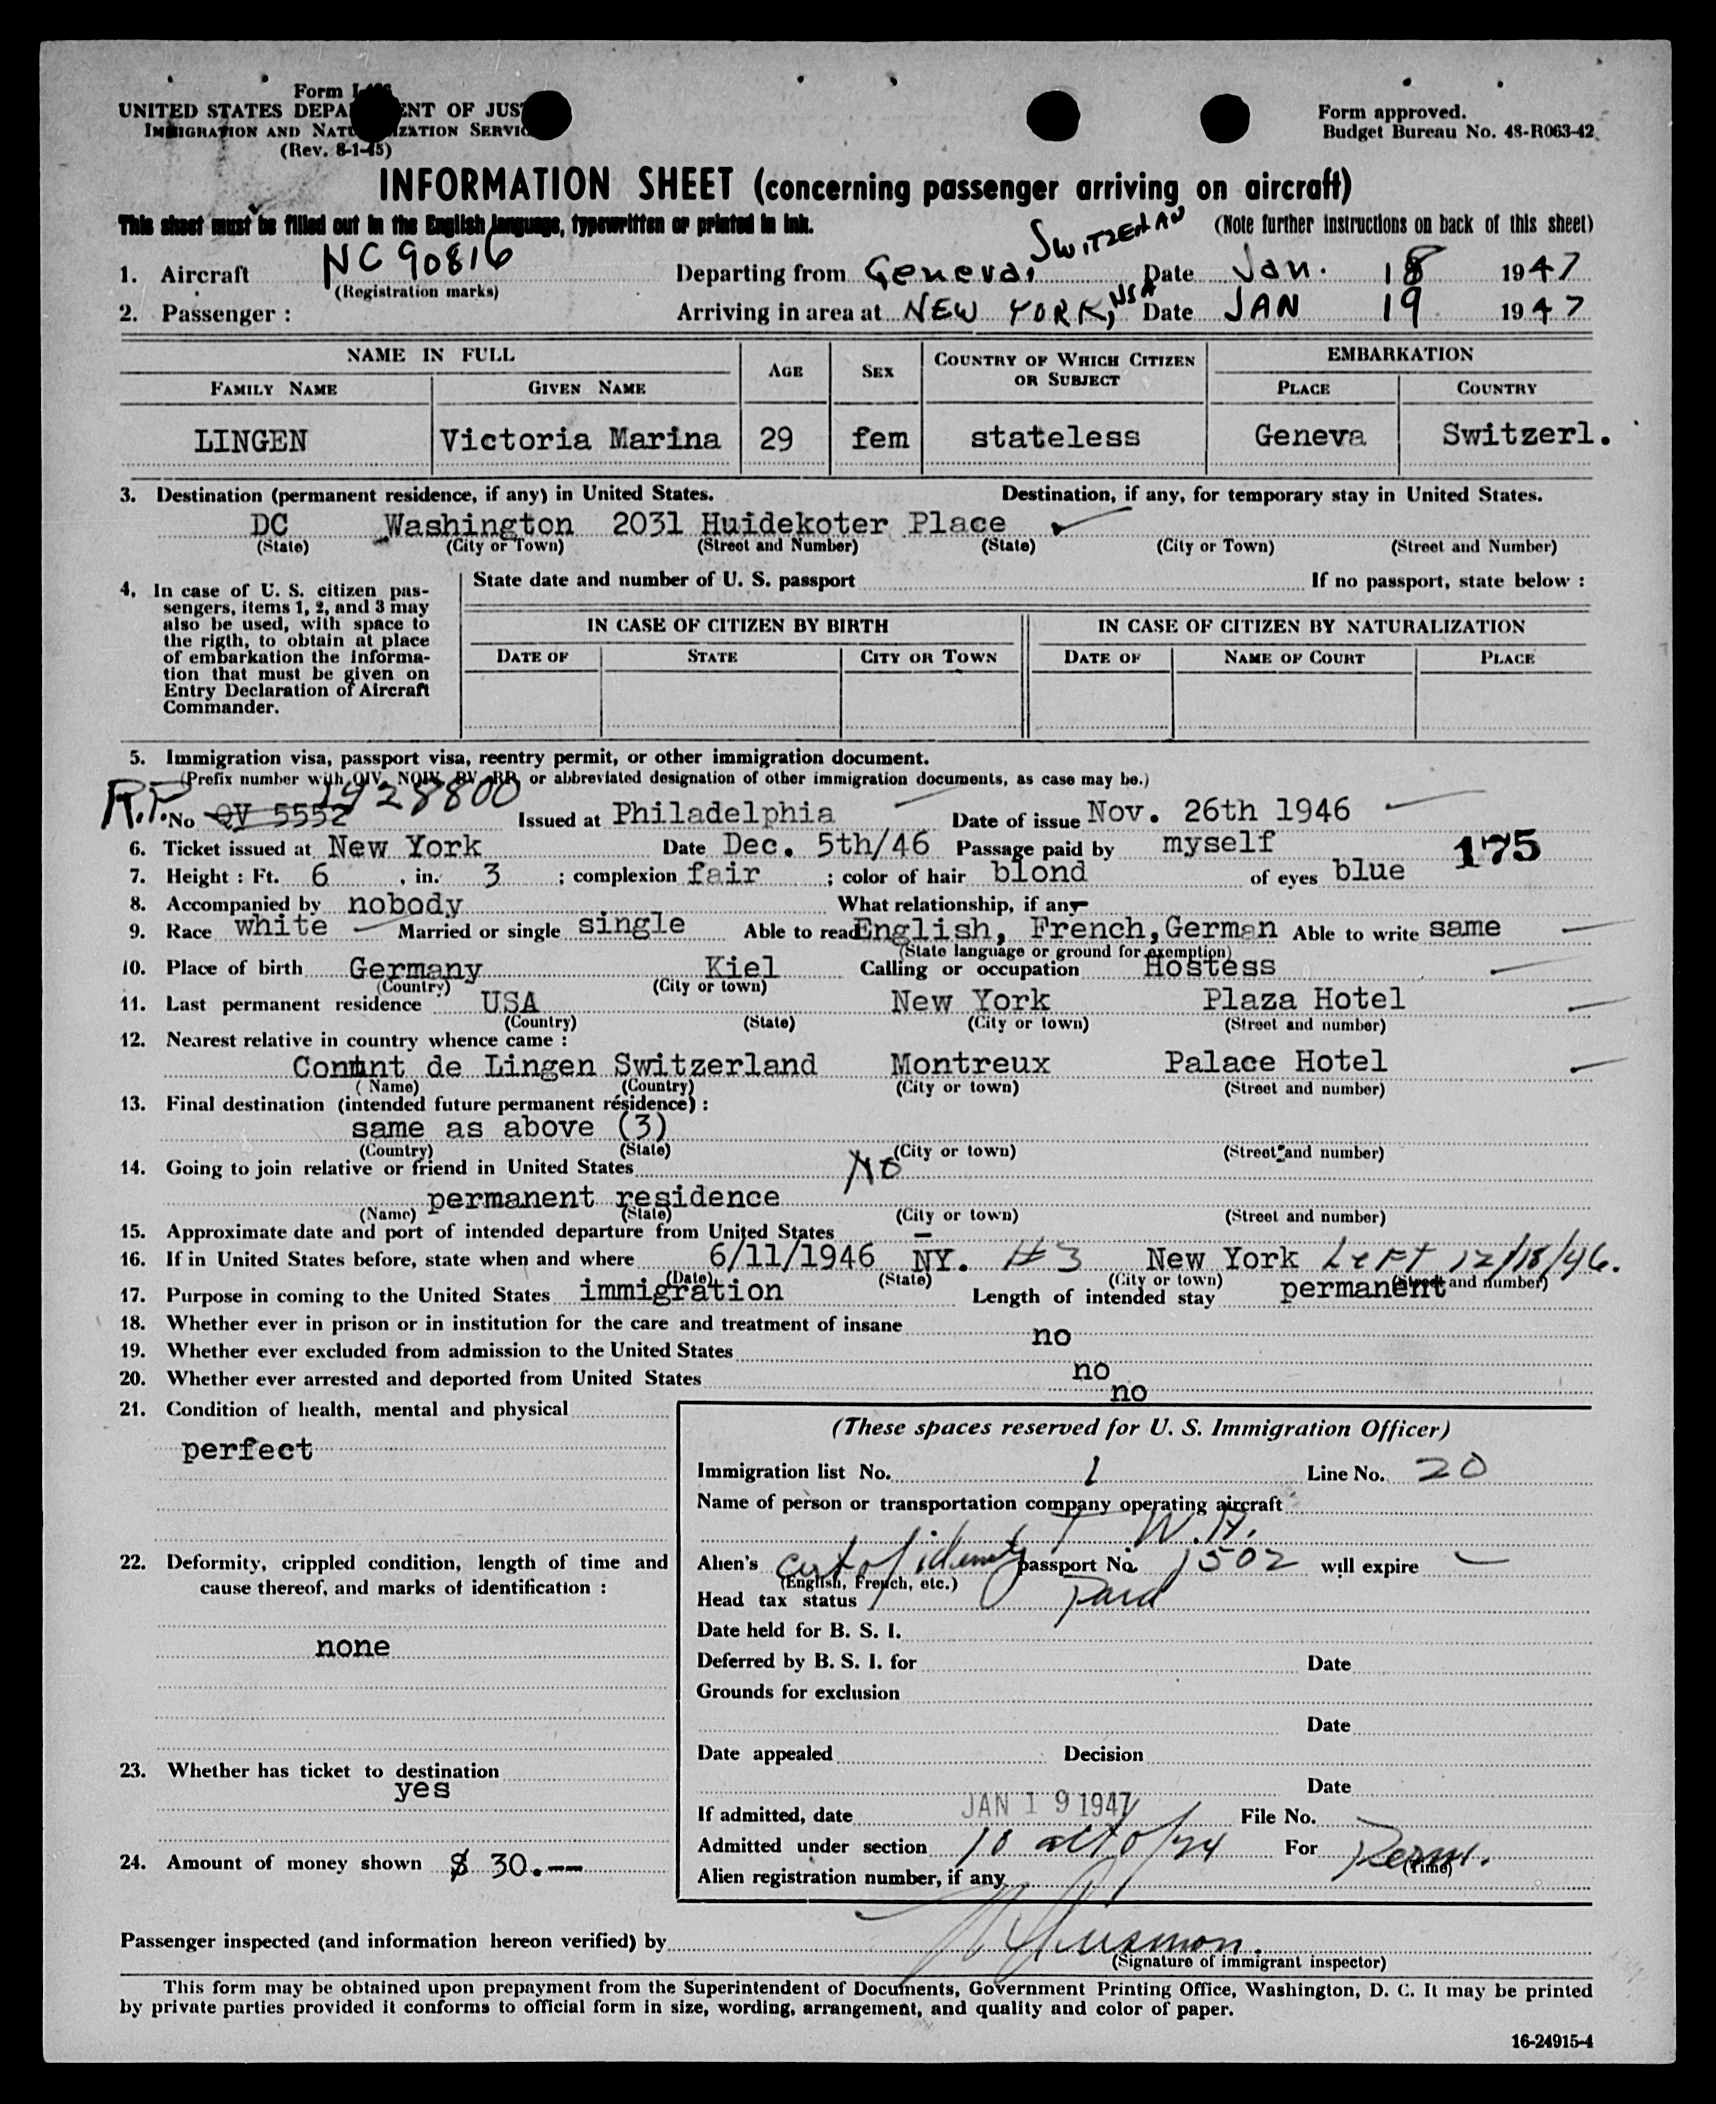 Form I-466
UNITED STATES DEPARTMENT OF JUSTICE
IMMIGRATION AND NATURALIZATION SERVICE
(Rev. 8-1-45)
Form approved.
Budget Bureau No. 43-R063-42
INFORMATION SHEET (concerning passenger arriving on aircraft)
This sheet must be filled out in the English language, typewritten or printed in ink. (Note further instructions on back of this sheet)
1. Aircraft NC 90816 Departing from Geneva, SWITZERLAN Date Jan. 18 1947
(Registration marks)
2. Passenger : Arriving in area at NEW YORK, USA Date JAN 19 1947
NAME IN FULL AGE SEX COUNTRY OF WHICH CITIZEN OR SUBJECT EMBARKATION
FAMILY NAME GIVEN NAME PLACE COUNTRY
LINGEN Victoria Marina 29 fem stateless Geneva Switzerl.
3. Destination (permanent residence, if any) in United States. Destination, if any, for temporary stay in United States.
DC Washington 2031 Huidekoter Place
(State) (City or Town) (Street and Number) (State) (City or Town) (Street and Number)
4. In case of U. S. citizen pas-
sengers, items 1, 2, and 3 may
also be used, with space to
the rigth, to obtain at place
of embarkation the informa-
tion that must be given on
Entry Declaration of Aircraft
Commander.
State date and number of U. S. passport If no passport, state below :
IN CASE OF CITIZEN BY BIRTH IN CASE OF CITIZEN BY NATURALIZATION
DATE OF STATE CITY OR TOWN DATE OF NAME OF COURT PLACE
5. Immigration visa, passport visa, reentry permit, or other immigration document.
(Prefix number with QIV, NQIV, PV, RP, or abbreviated designation of other immigration documents, as case may be.)
R.P. 1928800
No QV 5552 Issued at Philadelphia Date of issue Nov. 26th 1946
6. Ticket issued at New York Date Dec. 5th/46 Passage paid by myself 175
7. Height : Ft. 6 , in. 3 ; complexion fair ; color of hair blond of eyes blue
8. Accompanied by nobody What relationship, if any -
9. Race white Married or single single Able to read English, French, German Able to write same
(State language or ground for exemption)
10. Place of birth Germany Kiel Calling or occupation Hostess
(Country) (City or town)
11. Last permanent residence USA New York Plaza Hotel
(Country) (State) (City or town) (Street and number)
12. Nearest relative in country whence came :
de Lingen Switzerland Montreux Palace Hotel
( Name) (Country) (City or town) (Street and number)
13. Final destination (intended future permanent residence) :
same as above (3)
(Country) (State) (City or town) (Street and number)
14. Going to join relative or friend in United States No
permanent residence
(Name) (State) (City or town) (Street and number)
15. Approximate date and port of intended departure from United States -
16. If in United States before, state when and where 6/11/1946 NY. #3 New York Left 12/18/46.
(Date) (State) (City or town) (Street and number)
17. Purpose in coming to the United States immigration Length of intended stay permanent
18. Whether ever in prison or in institution for the care and treatment of insane no
19. Whether ever excluded from admission to the United States no
20. Whether ever arrested and deported from United States no
21. Condition of health, mental and physical
perfect
22. Deformity, crippled condition, length of time and
cause thereof, and marks of identification :
none
23. Whether has ticket to destination
yes
24. Amount of money shown $ 30.--
(These spaces reserved for U. S. Immigration Officer)
Immigration list No. 1 Line No. 20
Name of person or transportation company operating aircraft
T W.A.
Alien's cert of identity passport No. 1502 will expire
(English, French, etc.)
Head tax status Paid
Date held for B. S. I.
Deferred by B. S. I. for Date
Grounds for exclusion
Date
Date appealed Decision
Date
If admitted, date JAN 19 1947 File No.
Admitted under section 10 act of 24 For Perm.
(Time)
Alien registration number, if any
Passenger inspected (and information hereon verified) by
(Signature of immigrant inspector)
This form may be obtained upon prepayment from the Superintendent of Documents, Government Printing Office, Washington, D. C. It may be printed
by private parties provided it conforms to official form in size, wording, arrangement, and quality and color of paper.
16-24915-4